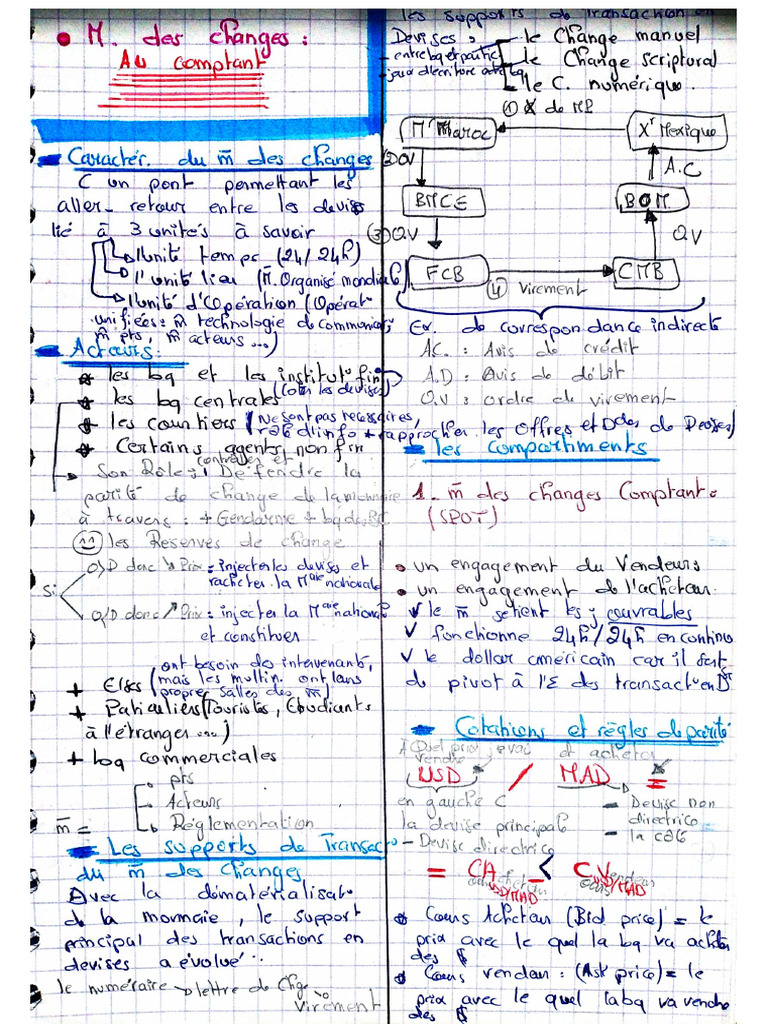 • M. des changes :
Au comptant
- Caractér. du m̄ des changes
C un pont permettant les
aller-retour entre les devises
lié à 3 unités à savoir
l'unité temps (24/24h)
l'unité lieu (M̄. Organisé mondial)
l'unité d'Opération (Opérat°
unifiées: m̄ technologie de communicat°,
m̄ pts, m̄ acteurs ...)
- Acteurs:
* les bq et les institut° fin
* les bq centrales (cote les devises)
* les courtiers (Ne sont pas nécessaires,
rôle d'info + rapprocher les Offres et Ddes de Devises)
* Certains agents non fin
Son Rôle : contrôler et Défendre la
parité de change de la monnaie
à travers : + Gendarme + bq de
les Réserves de change
Si
O>D donc ↘ Prix : injecter les devises et
racheter la Maie nationale
O<D donc ↗ Prix : injecter la Maie nationale
et constituer
+ E/ses (ont besoin des intervenants,
mais les multin. ont leurs
propres salles des m̄)
+ Particuliers (Touristes, Etudiants
à l'étranger ...)
+ bq commerciales
m̄ =
pts
Acteurs
Réglementation
- Les supports de Transact°
du m̄ des changes
Avec la dématérialisat°
de la monnaie, le support
principal des transactions en
devises a évolué :
le numéraire → lettre de Chge
→ virement
les supports de transaction en
Devises :
- entre bq et partic
- jeux d'écriture entre bq
le Change manuel
le Change scriptural
le C. numérique.
① X de MP
Mr Maroc
Xr Mexique
② OV
A.C
BMCE
BOM
③ OV
OV
FCB
④ virement
CMB
Ex. de correspondance indirecte
AC. : Avis de crédit
A.D : Avis de débit
O.V : ordre de virement
- les compartiments
1. m̄ des changes Comptant :
(SPOT)
• un engagement du Vendeurs
• un engagement de l'acheteur.
✓ le m̄ se tient les j ouvrables
✓ fonctionne 24h/24h en continu
✓ le dollar américain car il sert
de pivot à l'E des transact° en D
- Cotations et règles de parité
A Quel prix et acheter
vendre
USD / MAD =
en gauche C
la devise principale
- Devise directrice
- Devise non
directrice
- la côté
= CA USD/MAD < CV USD/MAD
* Cours Acheteur (Bid price) = le
prix avec lequel la bq va acheter
des $
* Cours vendeur : (Ask price) = le
prix avec lequel la bq va vendre
des $